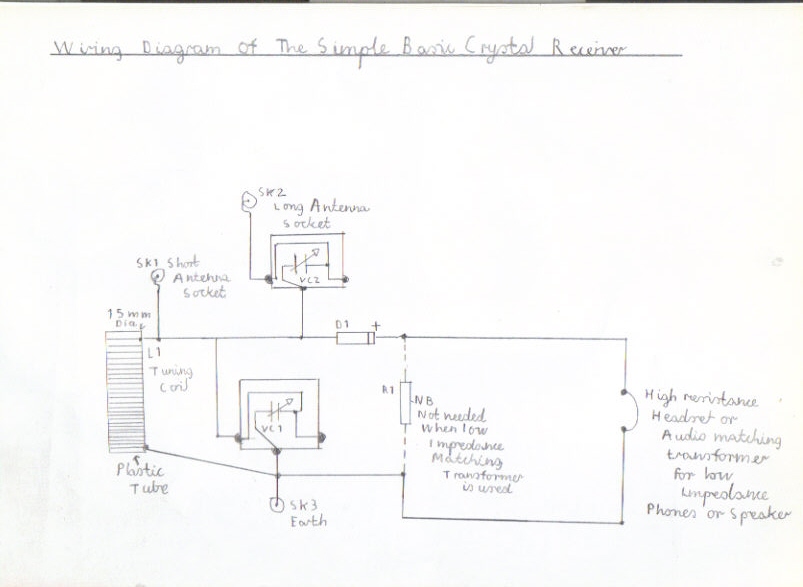 Wiring Diagram of The Simple Basic Crystal Receiver
SK2
Long Antenna
Socket
VC2
SK1 Short
Antenna
Socket
15mm
Dia
L1
Tuning
Coil
D1 +
R1
NB
Not needed
When low
Impedance
Matching
Transformer
is used
VC1
High resistance
Headset or
Audio matching
transformer
for low
impedance
Phones or Speaker
Plastic
Tube
SK3
Earth